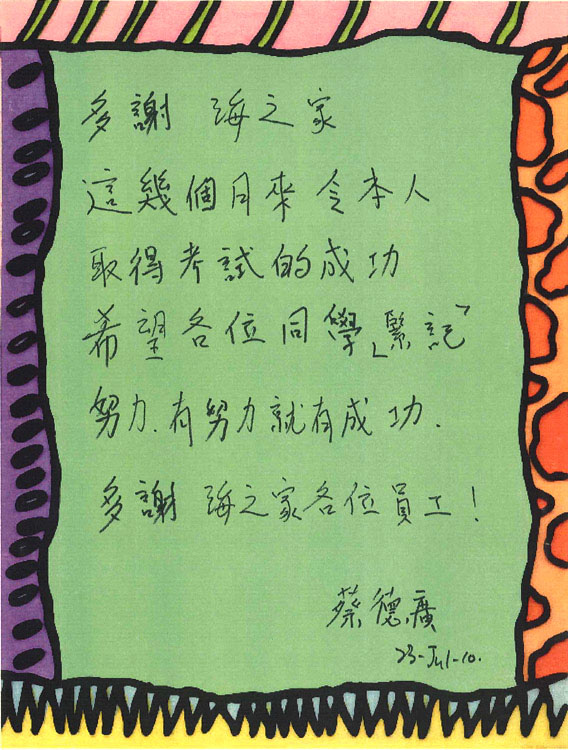 多謝 海之家
這幾個月來令本人
取得考試的成功
希望各位同學「緊記」
努力.有努力就有成功.
多謝 海之家各位員工!
蔡德廣
23-Jul-10.